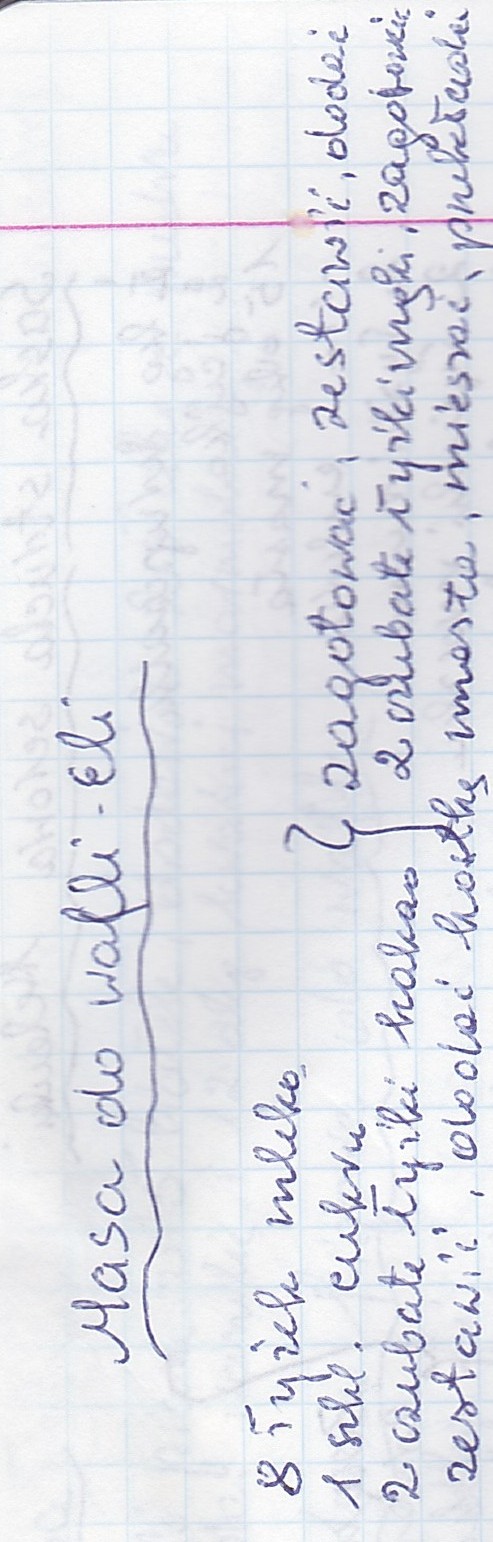 Masa do wafli - Eli
8 łyżek mleka
1 szkl. cukru
2 czubate łyżki kakao
} zagotować, zestawić, dodać
2 czubate łyżki mąki, zagotować
zestawić, dodać kostkę masła, mieszać, przekładać